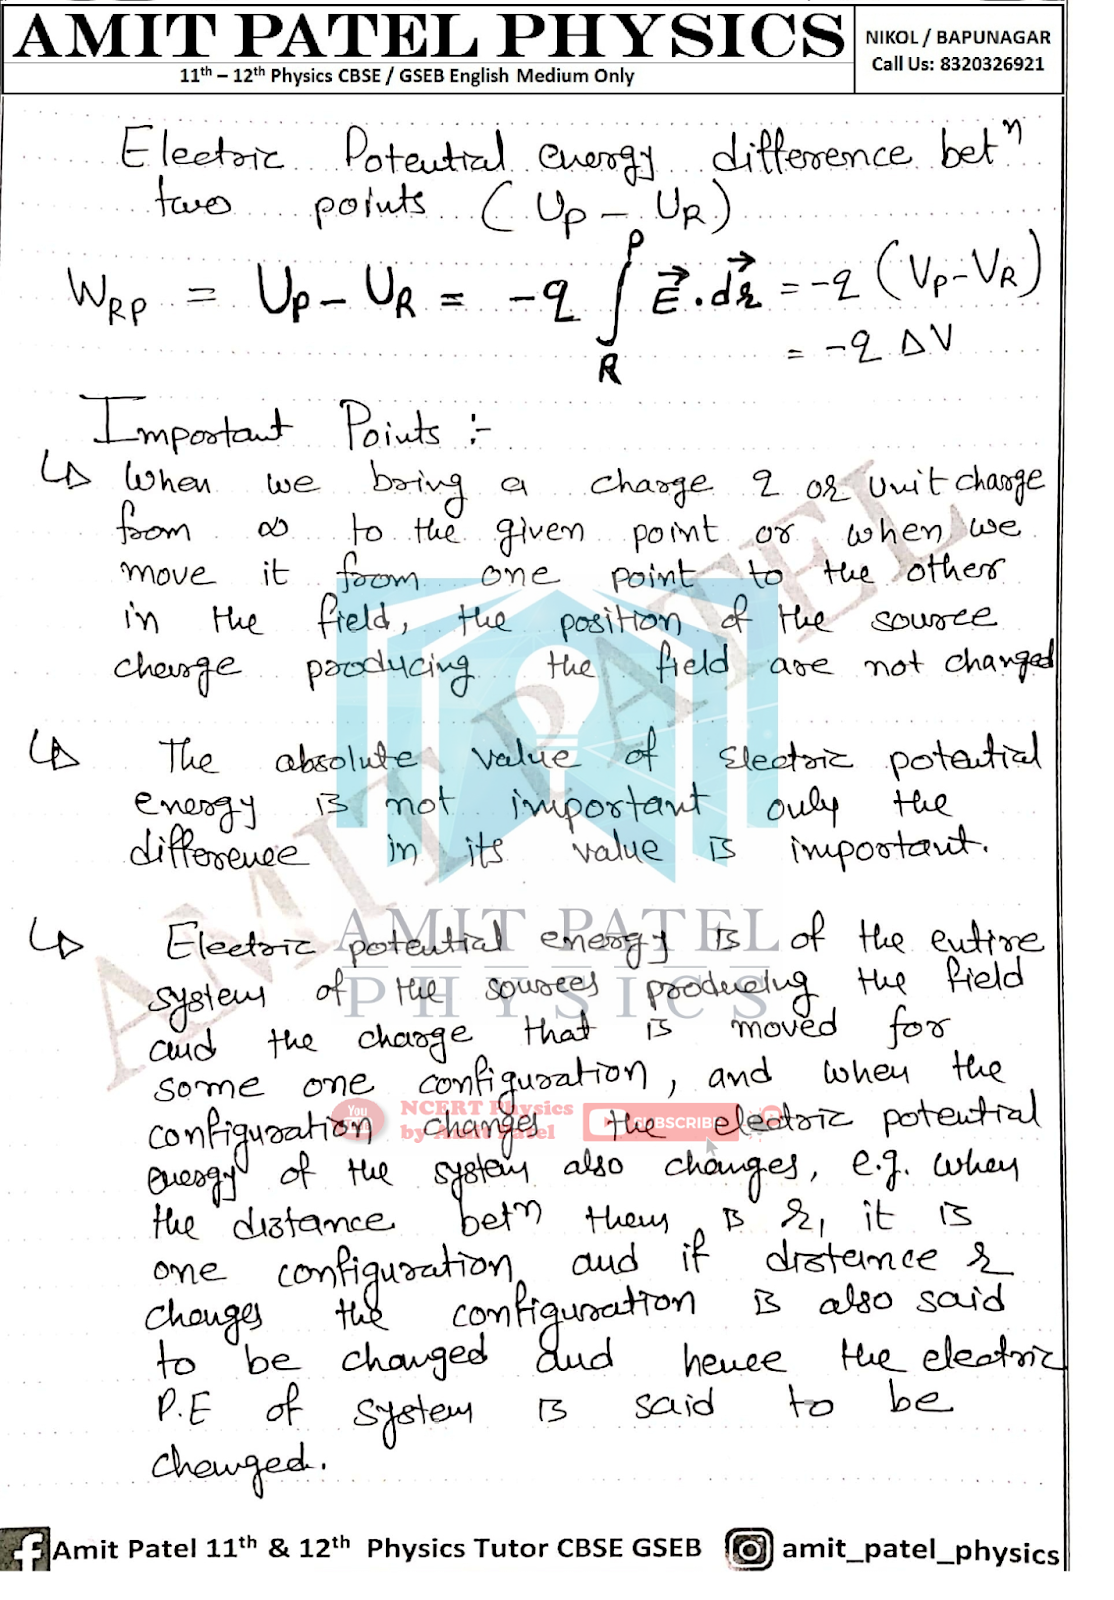 AMIT PATEL PHYSICS
11th – 12th Physics CBSE / GSEB English Medium Only
NIKOL / BAPUNAGAR
Call Us: 8320326921
Electric Potential energy difference betn
two points (UP - UR)
WRP = UP - UR = -q ∫RP E⃗ . dr⃗ = -q (VP - VR)
= -q ΔV
Important Points :-
↳ When we bring a charge q or unit charge
from ∞ to the given point or when we
move it from one point to the other
in the field, the position of the source
charge producing the field are not changed
↳ The absolute value of Electric potential
energy is not important only the
difference in its value is important.
↳ Electric potential energy is of the entire
system of the sources producing the field
and the charge that is moved for
some one configuration, and when the
configuration changes the electric potential
energy of the system also changes, e.g. when
the distance betn them is r, it is
one configuration and if distance r
changes the configuration is also said
to be changed and hence the electric
P.E of system is said to be
changed.
AMIT PATEL
AMIT PATEL
PHYSICS
You
NCERT Physics
by Amit Patel
SUBSCRIBE
Amit Patel 11th & 12th Physics Tutor CBSE GSEB
amit_patel_physics